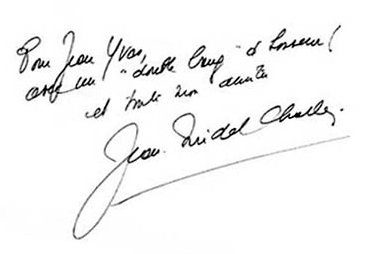 Pour Jean Yves,
avec un "double bang" d'honneur!
et toute mon amitié
Jean-Michel Charlier.